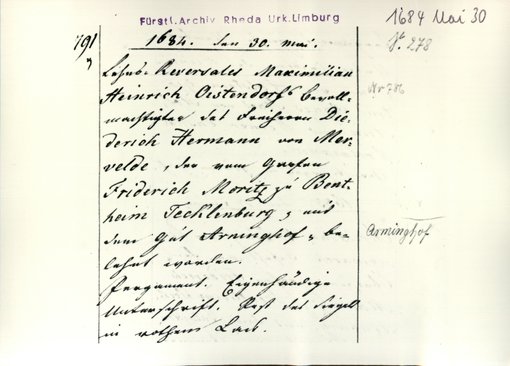 Fürstl. Archiv Rheda Urk. Limburg
1684 Mai 30
791
1684. den 30. Mai.
St. 278
Lehns-Reversales Maximilian
Heinrich Oistendorfs bevoll-
Nr 786
mächtigter des Freiherrn Die-
derich Hermann von Mer-
velde, der vom Grafen
Friderich Moritz zu Bent-
heim Tecklenburg, mit
Arminghof
dem Gut Arninghof, be-
lehnt worden.
Pergament. Eigenhändige
Unterschrift. Rest des Siegels
in rothem Lack.